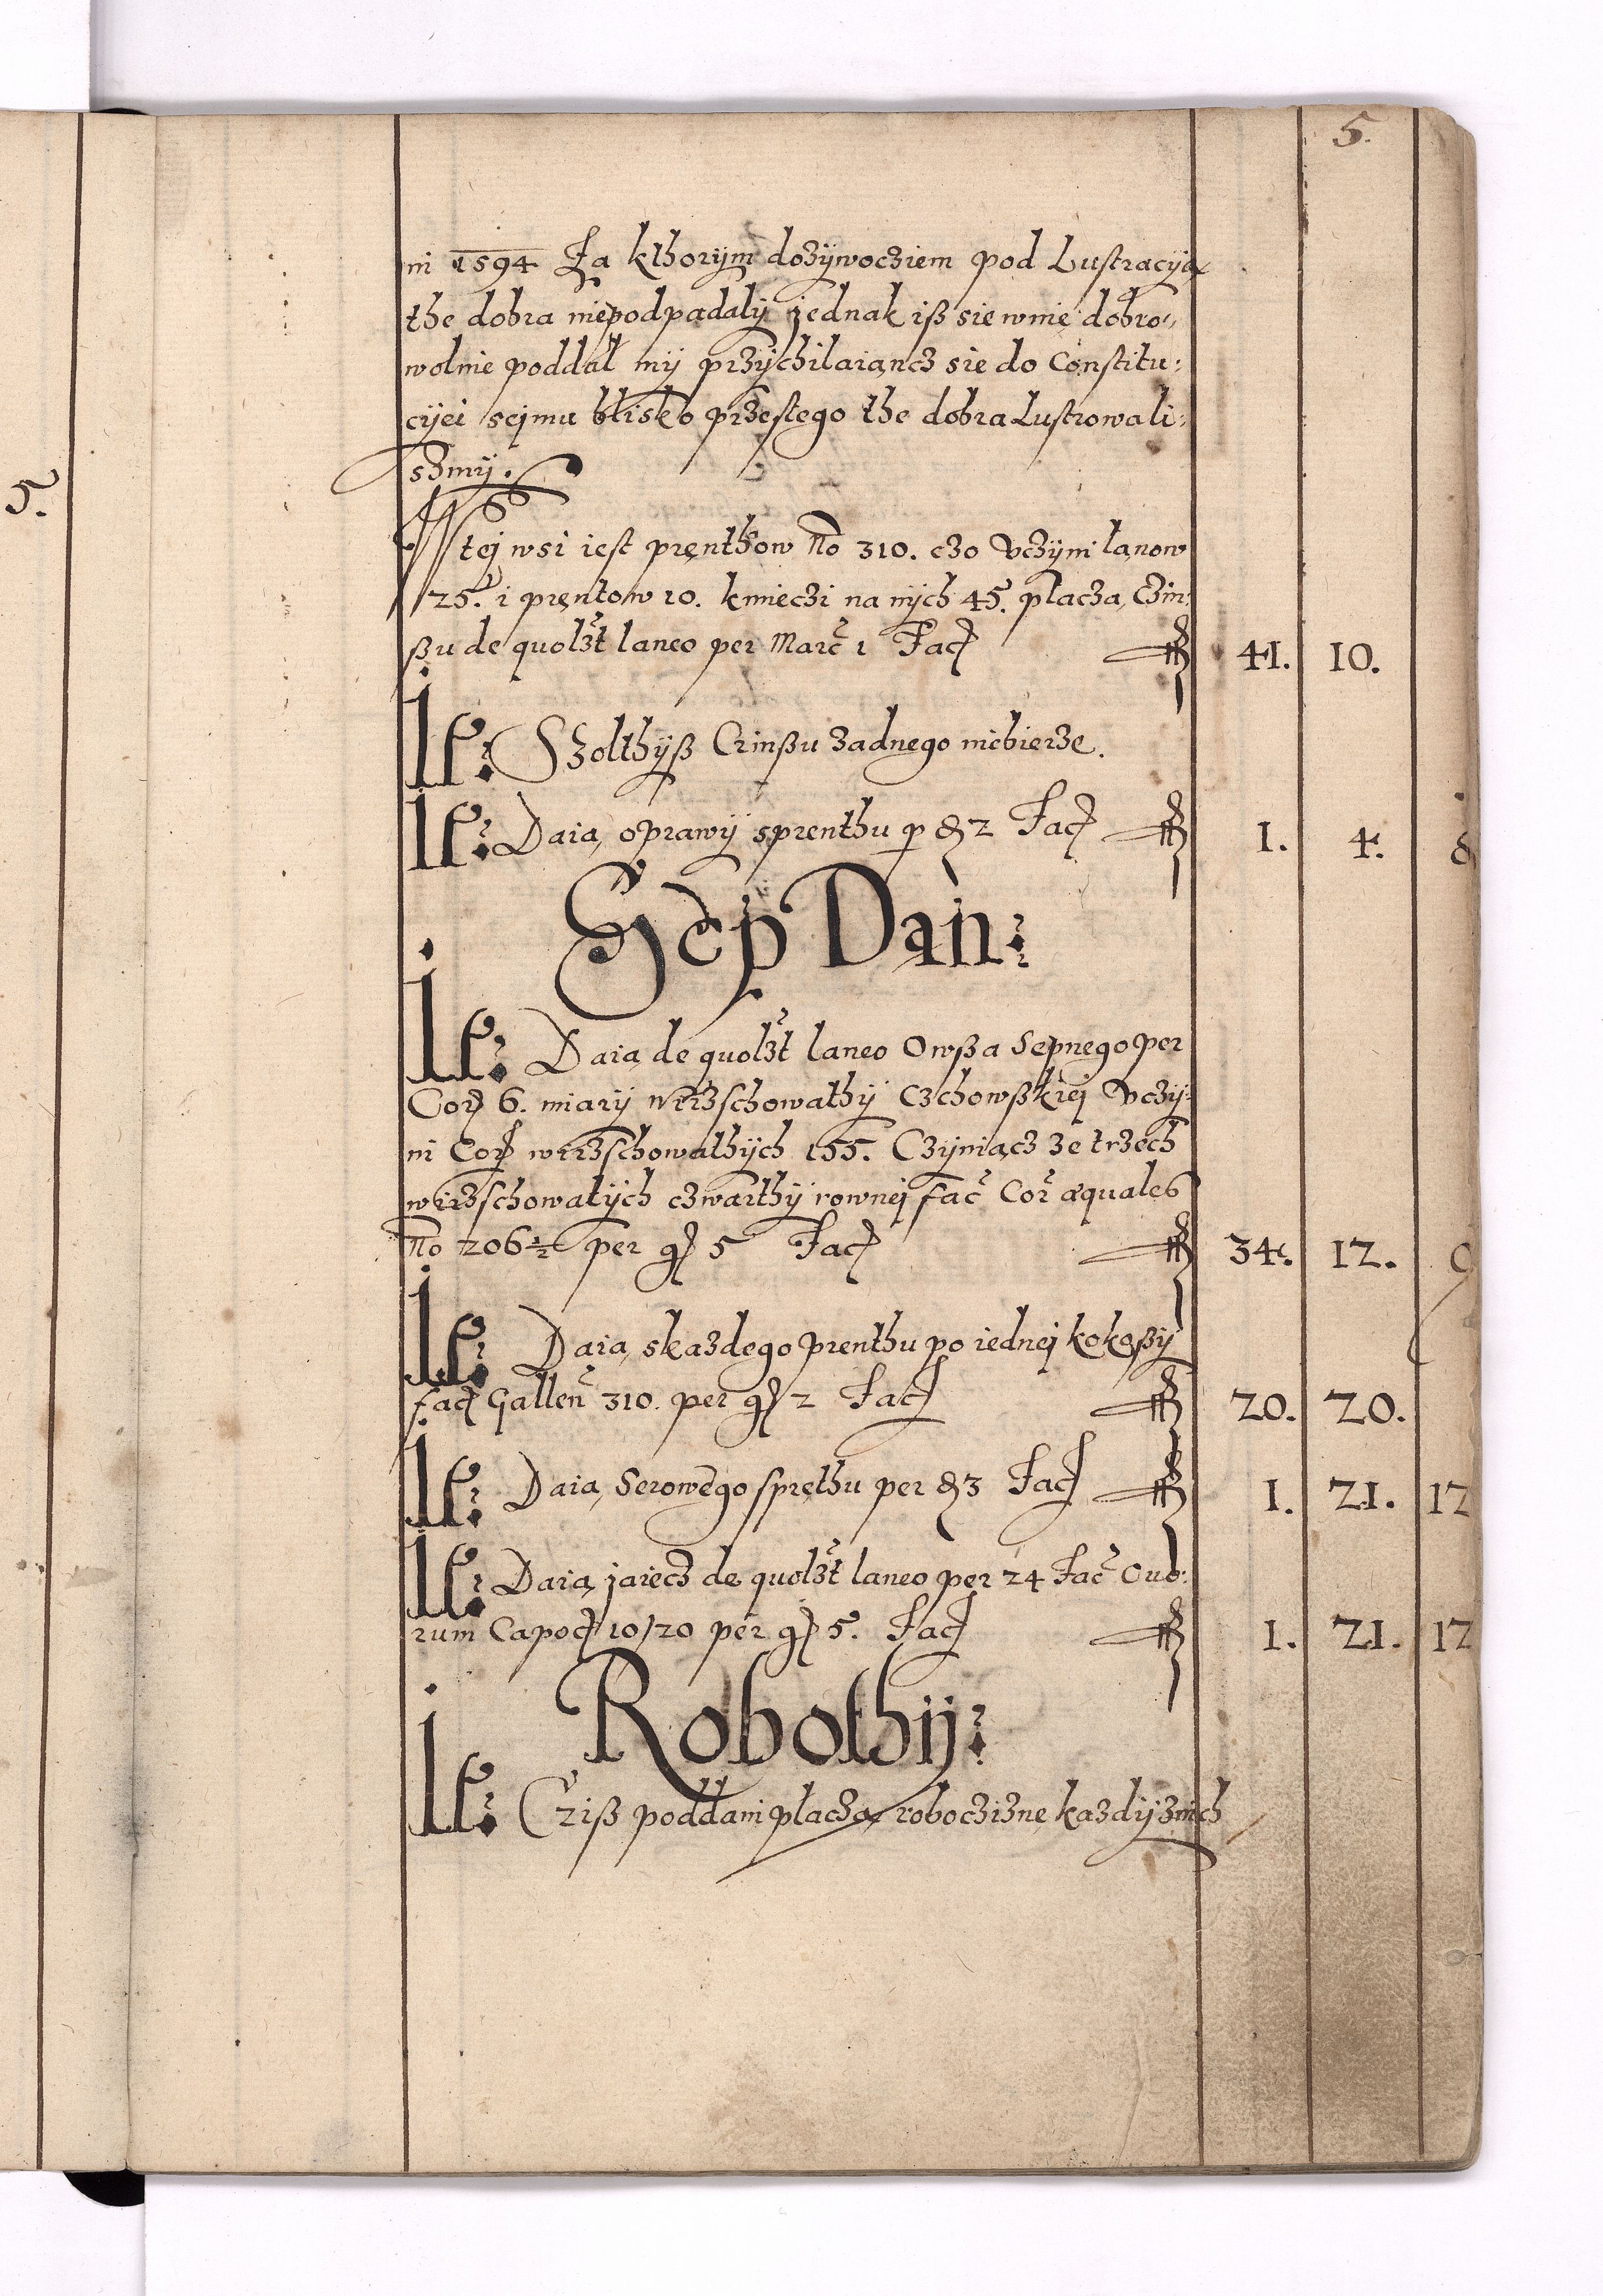 5.
5.
ni 1594 Za kthorym dożywocziem pod Lustracyją
the dobra niepodpadały jednak iß sie w nie dobro-
wolnie poddał my przychilaiąncz sie do Constitu:
cyjei sejmu blisko przestego the dobra Lustrowali:
szmy.
W tej wsi iest pręnthow No 310. czo Uczyni lanow
25. i pręntow 10. kmieczi na nych 45. płaczą Czin:
ßu de quolzt laneo per Marc 1 Fac 41. 10.
It: Szolthyß Czinßu zadnego niebierze.
It: Daią oprawy s prenthu p ₰ 2 Fac 1. 4. 8
Sęp Dan:
It: Daią de quolzt laneo Owßa Sępnego per
Cor 6. miary wirzschowathy Czchowßkiej Uczy:
ni Cor wirzschowathych 155. Czyniącz ze trzech
wirzschowatych czwarthy rownej fac Cor æquales
No 206½ per gr 5 Fac 34. 12. 9
It: Daią s kazdego prenthu po iednej kokoßy
fac Gallen 310. per gr 2 Fac 20. 20.
It: Daią Serowego s prethu per ₰ 3 Fac 1. 21. 12
It: Daią jaiecz de quolzt laneo per 24 Fac Ouo:
rum Capoc 10/20 per gr 5. Fac 1. 21. 12
Robothy:
It: Cziß poddani płaczą roboczizne kazdy z nich